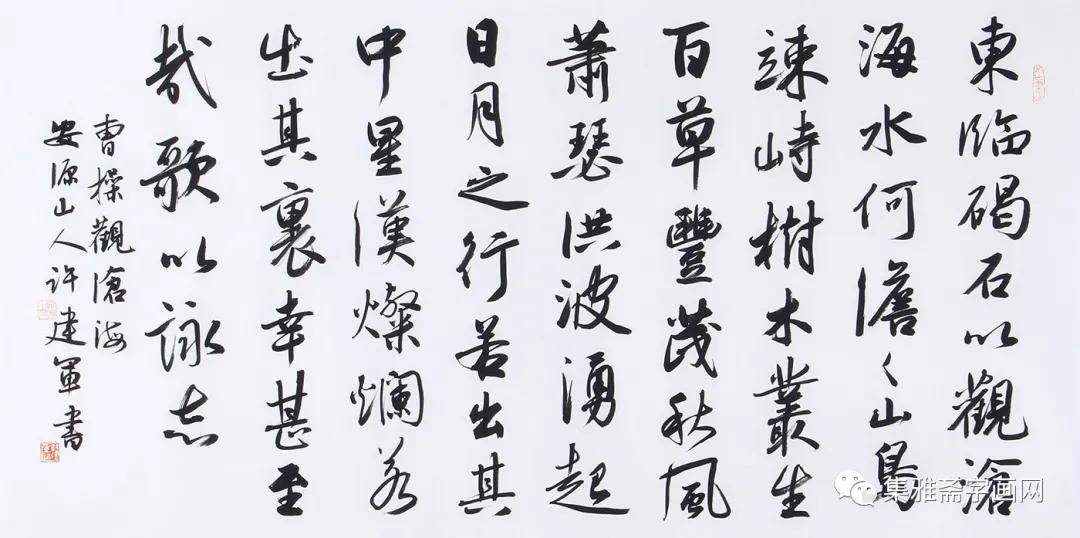 東临碣石以觀滄
海水何澹々山島
竦峙樹木叢生
百草豐茂秋風
蕭瑟洪波湧起
日月之行若出其
中星漢燦爛若
出其裏幸甚至
哉歌以詠志
曹操觀滄海
安源山人许建軍書
集雅斋字画网